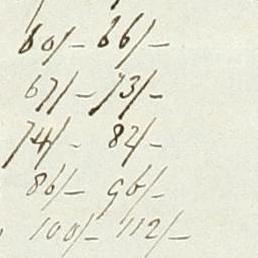 60/- 66/-
67/- 73/-
74/- 82/-
86/- 96/-
100/- 112/-